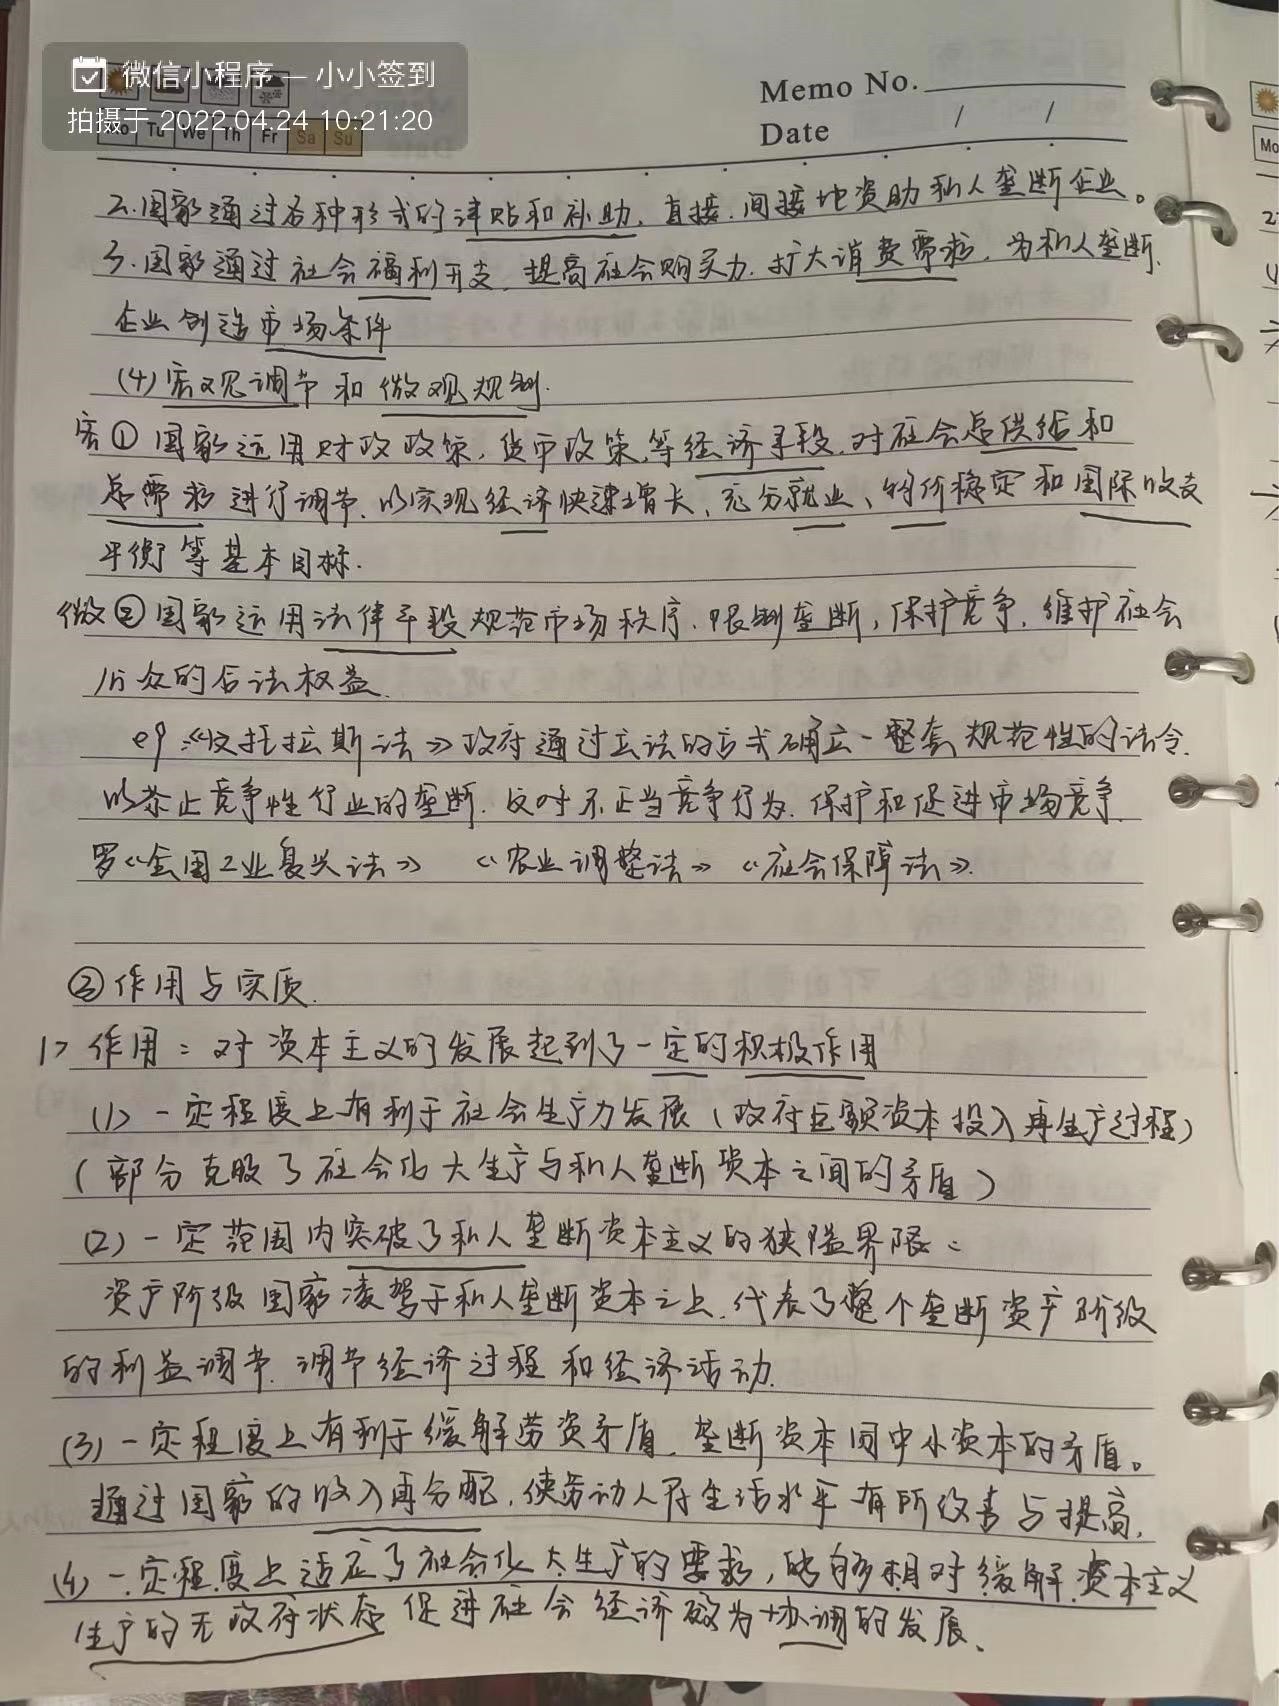 微信小程序— 小小签到
拍摄于 2022.04.24 10:21:20
Mo Tu We Th Fr Sa Su
Memo No.
Date / /
Mo
2.国家通过各种形式的津贴和补助,直接.间接地资助私人垄断企业。
3.国家通过社会福利开支,提高社会购买力.扩大消费需求,为私人垄断.
企业创造市场条件
(4)宏观调节和微观规制.
宏①国家运用财政政策,货币政策,等经济手段.对社会总供给和
总需求进行调节,以实现经济快速增长、充分就业、物价稳定和国际收支
平衡等基本目标.
微②国家运用法律手段规范市场秩序.限制垄断,保护竞争,维护社会
公众的合法权益.
eg.《反托拉斯法》政府通过立法的方式确立一整套规范性的法令.
以禁止竞争性行业的垄断.反对不正当竞争行为.保护和促进市场竞争.
罗《全国工业复兴法》 《农业调整法》《社会保障法》.
③作用与实质.
1> 作用:对资本主义的发展起到了一定的积极作用
(1) 一定程度上有利于社会生产力发展(政府巨额资本投入再生产过程)
(部分克服了社会化大生产与私人垄断资本之间的矛盾)
(2)一定范围内突破了私人垄断资本主义的狭隘界限:
资产阶级国家凌驾于私人垄断资本之上.代表了整个垄断资产阶级
的利益调节.调节经济过程和经济活动.
(3)一定程度上有利于缓解劳资矛盾,垄断资本同中小资本的矛盾。
通过国家的收入再分配,使劳动人民生活水平有所改善与提高.
(4)一定程度上适应了社会化大生产的要求,能够相对缓解资本主义
生产的无政府状态 促进社会经济较为协调的发展、